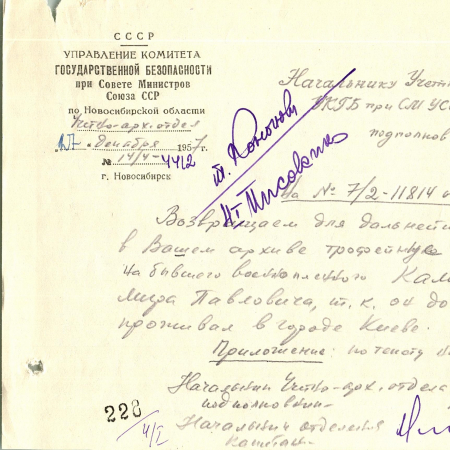 СССР
УПРАВЛЕНИЕ КОМИТЕТА
ГОСУДАРСТВЕННОЙ БЕЗОПАСНОСТИ
при Совете Министров
Союза ССР
по Новосибирской области
Учетно-арх. отдел
17 декабря 1957
№ 14/4-4412
г. Новосибирск
Начальнику Учетн
УКГБ при СМ УС
подполков
т. Кононова
На № 7/2-11814
Возвращаем для дальней
в Вашем архиве трофейную
на бывшего военнопленного Кал
мира Павловича, т.к. он до
проживал в городе Киеве.
Приложение: по тексту
Начальник Учетно-арх. отдела
подполковник-
Начальник отделения
капитан-
228
4/I